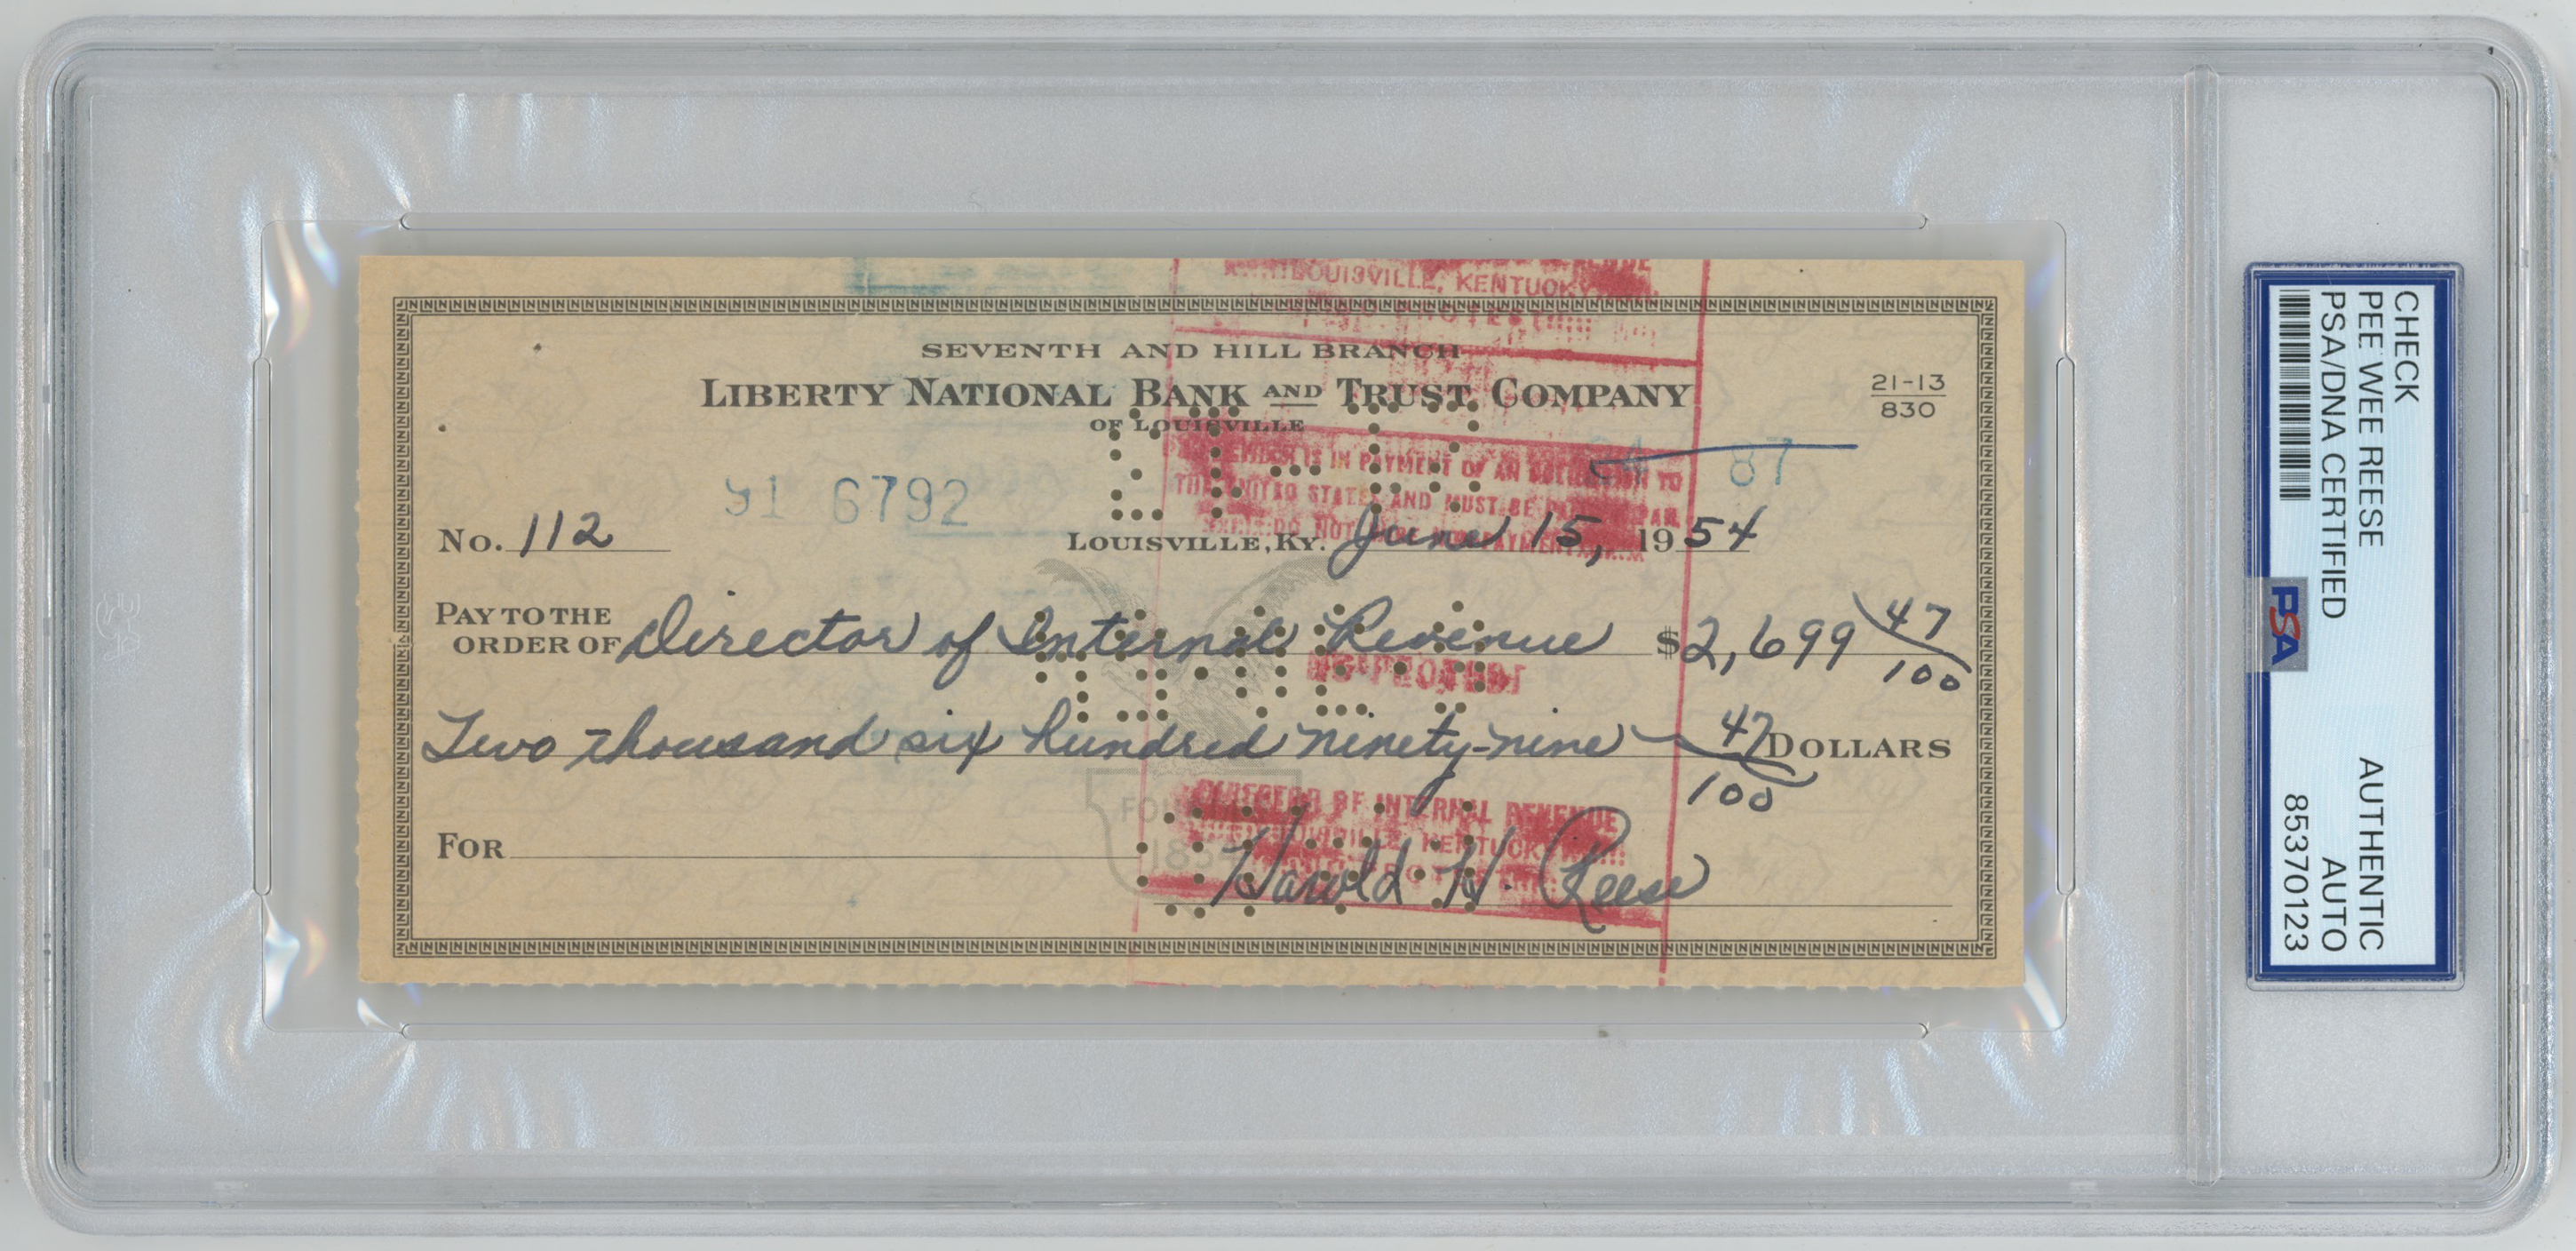 LOUISVILLE, KENTUCKY
SEVENTH AND HILL BRANCH
LIBERTY NATIONAL BANK AND TRUST COMPANY
OF LOUISVILLE
21-13
830
IS IN PAYMENT OF AN TO
STATES AND MUST BE
87
91 6792
No. 112
LOUISVILLE, KY. June 15, 1954
PAY TO THE
ORDER OF Director of Internal Revenue $2,699 47/100
Two thousand six hundred ninety-nine 47/100 DOLLARS
DIRECTOR OF INTERNAL REVENUE
KENTUCKY
FOR
Harold H. Reese
CHECK
PEE WEE REESE AUTHENTIC
PSA/DNA CERTIFIED AUTO
85370123
PSA